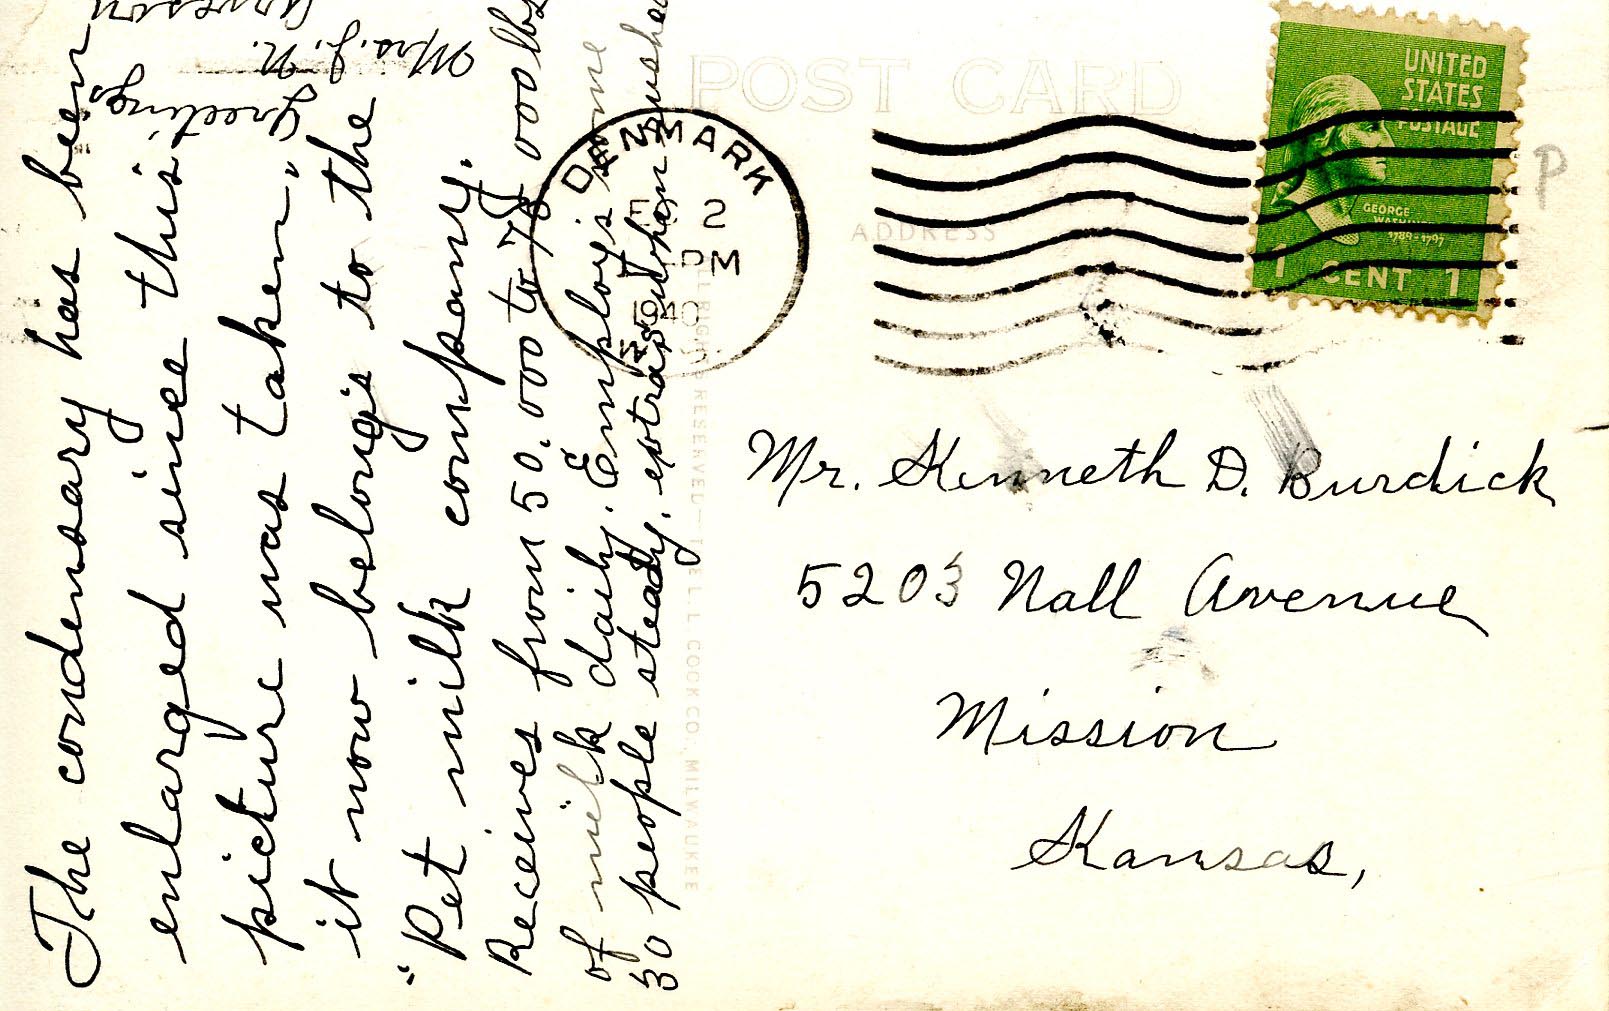 The condensary has been
enlarged since this
picture was taken,
it now belongs to the
"Pet milk company."
Receives from 50.000 to 78.000 lbs
of milk daily. Employs some
30 people steady, extra when rushed
Greetings
Mrs. J. N.
POST CARD
ADDRESS
DENMARK
2
PM
1940
UNITED
STATES
POSTAGE
GEORGE
WASHINGTON
1789-1797
1 CENT 1
P
ALL RIGHTS RESERVED—THE L. L. COOK CO., MILWAUKEE
Mr. Kenneth D. Burdick
5203 Nall Avenue
Mission
Kansas,